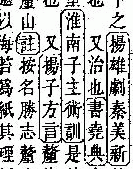 之揚雄劇秦美新
又治也書堯典
淮南子主術訓是
又揚子方言釐
山註按名勝志釐
以海苔為紙其理